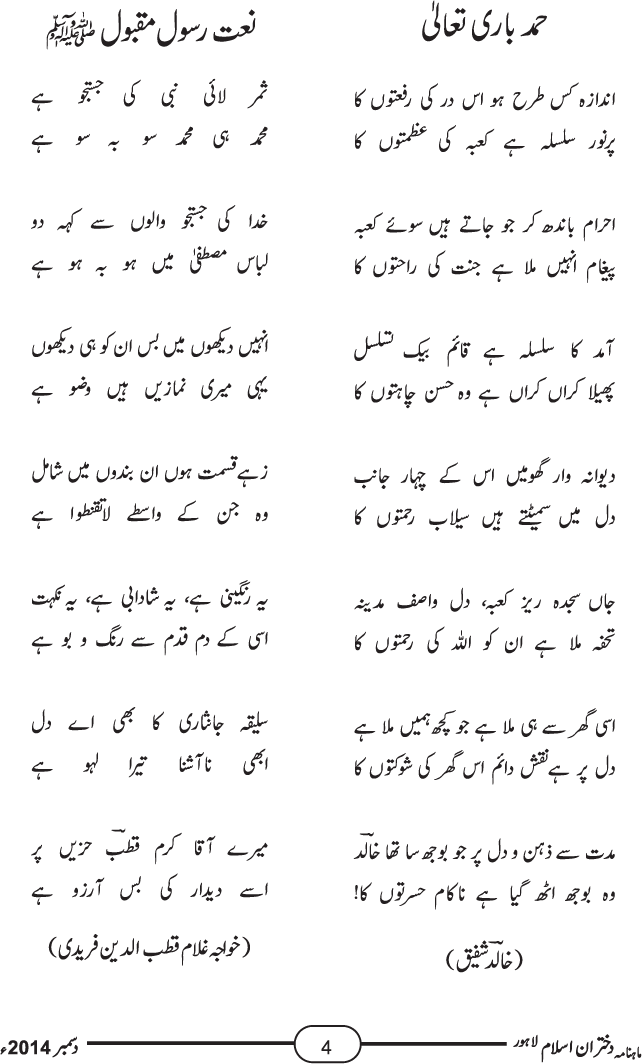 حمد باری تعالیٰ
اندازہ کس طرح ہو اس در کی رفعتوں کا
پرنور سلسلہ ہے کعبہ کی عظمتوں کا
احرام باندھ کر جو جاتے ہیں سوئے کعبہ
پیغام انہیں ملا ہے جنت کی راحتوں کا
آمد کا سلسلہ ہے قائم بیک تسلسل
پھیلا کراں کراں ہے وہ حسن چاہتوں کا
دیوانہ وار گھومیں اس کے چہار جانب
دل میں سمیٹتے ہیں سیلاب رحمتوں کا
جاں سجدہ ریز کعبہ، دل واصف مدینہ
تحفہ ملا ہے ان کو اللہ کی رحمتوں کا
اسی گھر سے ہی ملا ہے جو کچھ ہمیں ملا ہے
دل پر ہے نقش دائم اس گھر کی شوکتوں کا
مدت سے ذہن و دل پر جو بوجھ سا تھا خالدؔ
وہ بوجھ اٹھ گیا ہے ناکام حسرتوں کا!
(خالدؔ شفیق)
نعت رسول مقبول ﷺ
ثمر لائی نبی کی جستجو ہے
محمدؐ ہی محمدؐ سو بہ سو ہے
خدا کی جستجو والوں سے کہہ دو
لباس مصطفیٰ میں ہو بہ ہو ہے
انہیں دیکھوں میں بس ان کو ہی دیکھوں
یہی میری نمازیں ہیں وضو ہے
زہے قسمت ہوں ان بندوں میں شامل
وہ جن کے واسطے لاتقنطوا ہے
یہ رنگینی ہے، یہ شادابی ہے، یہ نکہت
اسی کے دم قدم سے رنگ و بو ہے
سلیقہ جانثاری کا بھی اے دل
ابھی ناآشنا تیرا لہو ہے
میرے آقا کرم قطبؔ حزیں پر
اسے دیدار کی بس آرزو ہے
(خواجہ غلام قطب الدین فریدی)
ماہنامہ دختران اسلام لاہور 4 دسمبر 2014ء